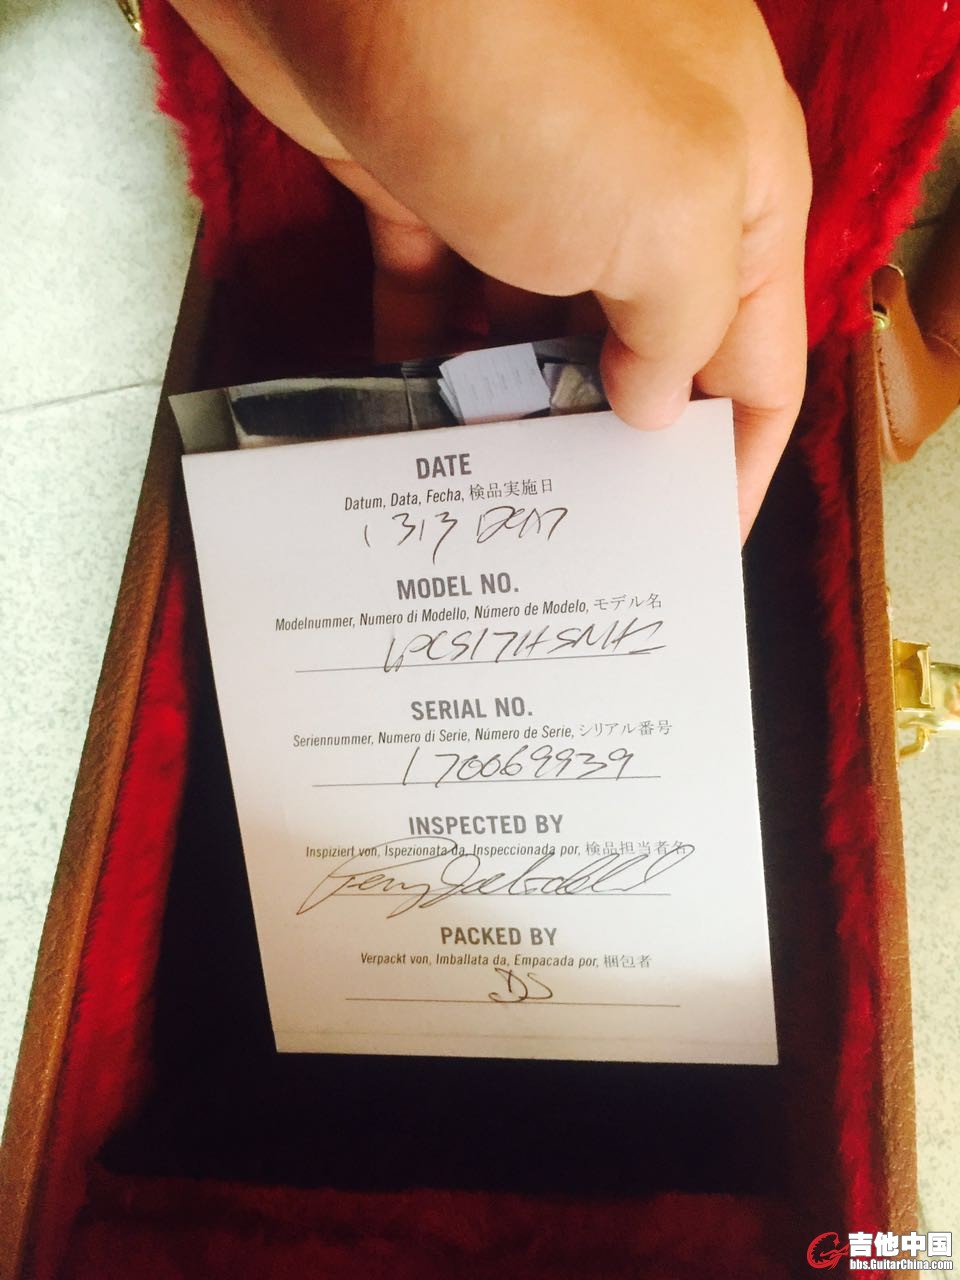 DATE
Datum, Data, Fecha, 検品実施日
MODEL NO.
Modelnummer, Numero di Modello, Número de Modelo, モデル名
LPCS17HSNH
SERIAL NO.
Seriennummer, Numero di Serie, Número de Serie, シリアル番号
170069939
INSPECTED BY
Inspiziert von, Ispezionata da, Inspeccionada por, 検品担当者名
PACKED BY
Verpackt von, Imballata da, Empacada por, 梱包者
DS
吉他中国
bbs.GuitarChina.com